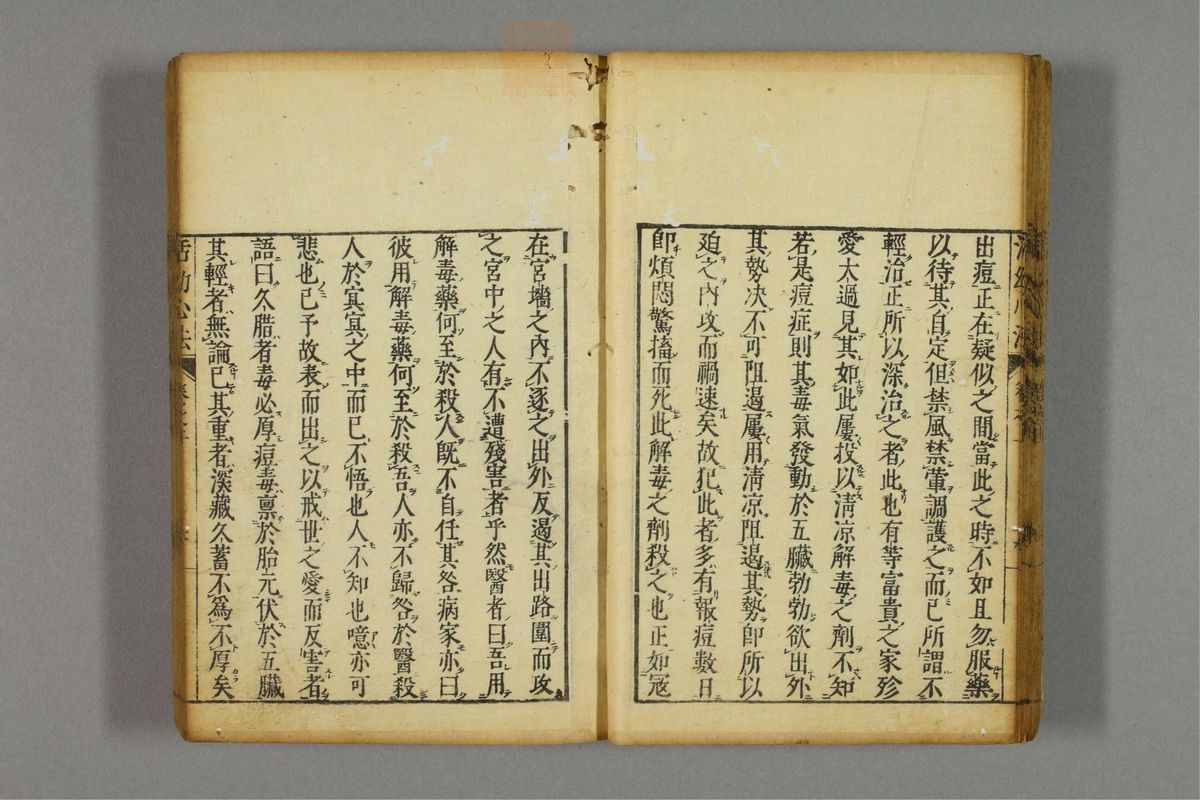 出痘正在疑似之間當此之時不如且勿服藥
以待其自定但禁風禁葷調護之而已所謂不
輕治正所以深治之者此也有等富貴之家珍
愛太過見其如此屢投以清凉解毒之劑不知
若是痘症則其毒氣發動於五臟勃勃欲出外
其勢决不可阻遏屢用清凉阻遏其勢即所以
廹之內攻而禍速矣故犯此者多有報痘數日
卽煩悶驚搐而死此解毒之劑殺之也正如冦
在宮墻之內不逐之出外反遏其出路圍而攻
之宮中之人有不遭殘害者乎然醫者曰吾用
解毒藥何至於殺人既不自任其咎病家亦曰
彼用解毒藥何至於殺吾人亦不歸咎於醫殺
人於冥冥之中而已不悟也人不知也噫亦可
悲也已予故表而出之以戒世之愛而反害者
語曰久腊者毒必厚痘毒禀於胎元伏於五臟
其輕者無論已其重者深藏久蓄不爲不厚矣
活幼心法